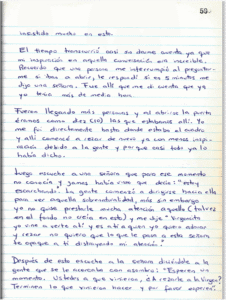 50
insistido mucho en esto.
El tiempo transcurrió casi sin darme cuenta ya que
mi inspiración en aquella conversación era increíble.
Recuerdo que una persona me interrumpió al preguntar-
me si iba a abrir, le respondí si es 5 minutos me
dijo una señora. Fue allí que me di cuenta que ya
yo tenía más de media hora.
Fueron llegando más personas y al abrirse la puerta
éramos como diez (10) las que estábamos allí. Yo
me fui directamente hasta donde estaba el cuadro
y allí comencé a rezar de nuevo ya con menos inspi-
ración debido a la gente y porque casi todo ya lo
había dicho.
Luego escuche a una señora que para ese momento
no conocía y jamás había visto que decía:
escuchando. La gente comenzó a dirigirse hacia ella
para ver aquella sobrenaturalidad, más sin embargo
yo no quise prestarle mucha atención a aquello (antes
en el fondo no creía en esto) y me dije "Virgencita
yo vine a verte a ti y es a ti a quien yo quiero adorar
y rezar no quiero que lo que le pasa a esta señora
te opaque a ti distrayendo mi atención."
Después de esto escuche a la señora diciéndole a la
gente que se le acercaba con asombro: "Esperen un
momento. Ustedes a que vinieron, a rezarle a la Virgen?
Terminen lo que vinieron hacer y por favor esperen